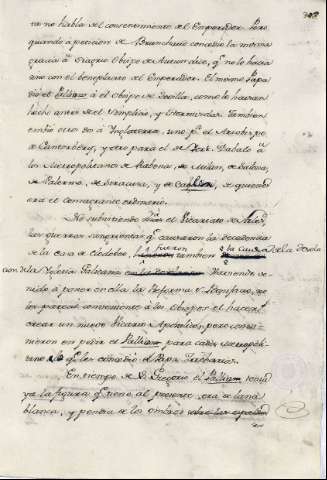 no habla del consentimiento del Emperador. Pero
quando à peticion de Brunehaut concedio la misma
gracia à Siagrio Obispo de Autun dice, q.e no lo hacia
sino con el beneplacito del Emperador. El mismo Papa
dió el Pallium à el Obispo de Sevilla, como lo havian
hecho antes de el Simplicio, y Hormisdas. Tambien
embio otros à Inglaterra, uno p.a el Arzobispo
de Cantorbery, y otro para el de York. Dabalo à
los Metropolitanos de Rabena, de Milan, de
de Palermo, de Siracusa, y de
era el consagrante ordinario.
No subsistiendo el Vicariato de Arles,
las guerras sangrientas q.e causaron la decadencia
de la casa de Clodoveo, fueron tambien la causa de la desola
cion de la Iglesia Galicana Haviendo ve
nido à poner en ella la reforma S. Bonifacio, no
les pareció conveniente à los Obispos el hacer,
crear un nuevo Vicario Apostolico, pero consi
nieron en pedir el Pallium para cada metropoli
tano q.e les concedio el Papa Zacharias.
En tiempo de S. Gregorio el Pallium tenia
ya la figura q.e tiene al presente, era de lana
blanca, y pendia de los ombros